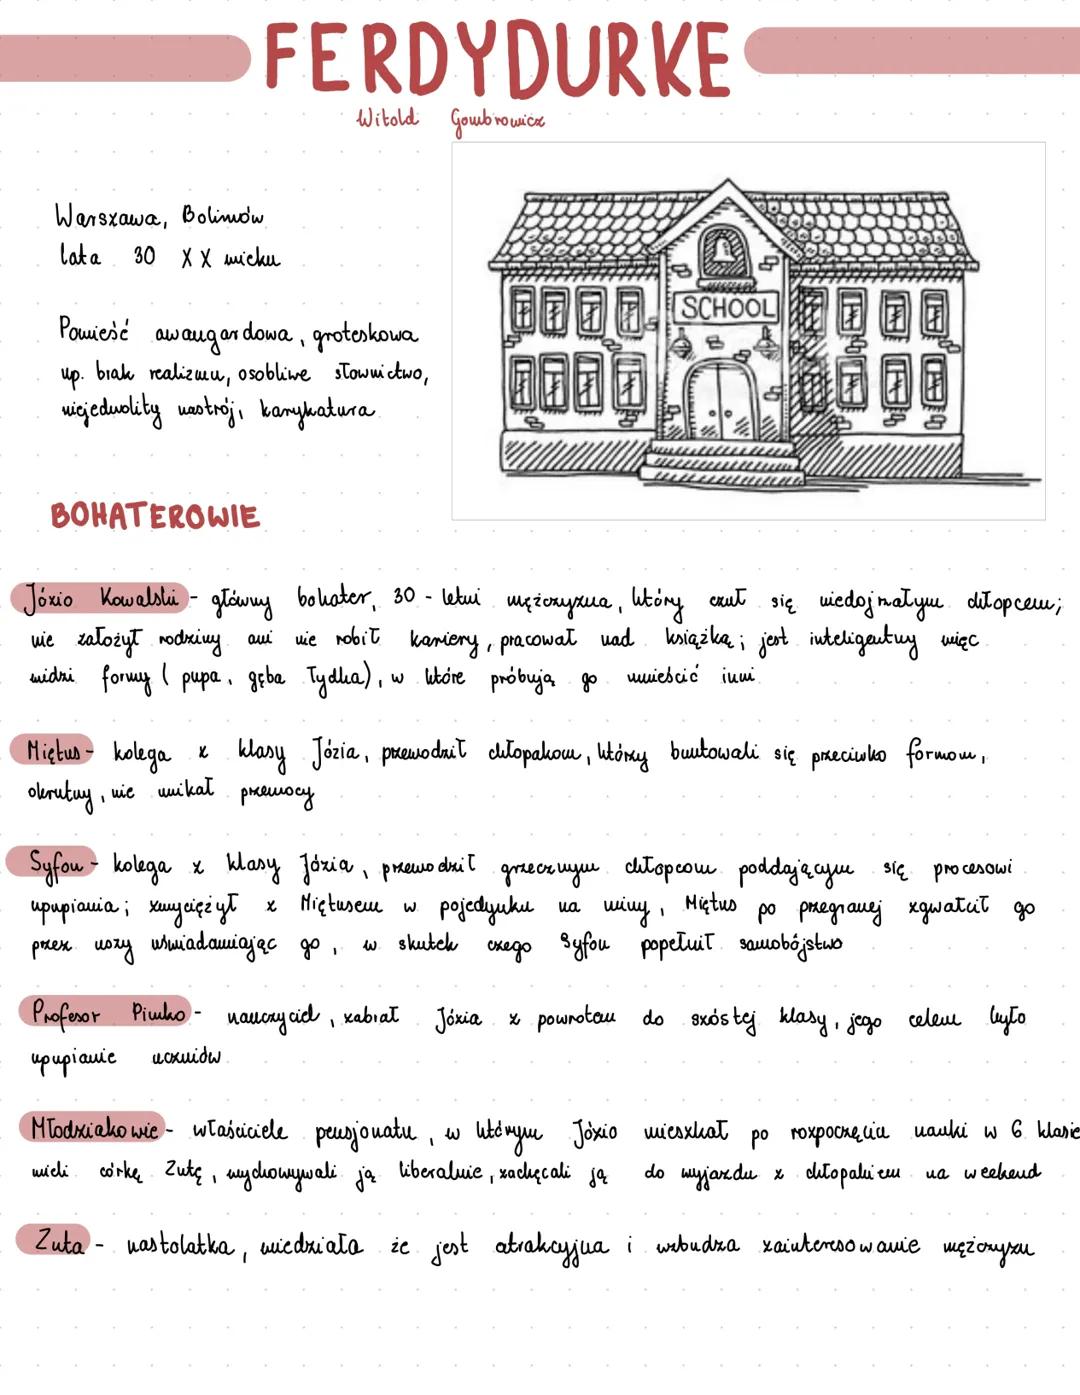 FERDYDURKE
Witold Gombrowicz
Warszawa, Bolimów
lata 30 XX wieku
SCHOOL
Powieść awangardowa, groteskowa
np. brak realizmu, osobliwe słownictwo,
niejednolity nastrój, karykatura
BOHATEROWIE
Józio Kowalski - główny bohater, 30-letni mężczyzna, który czuł się niedojrzałym chłopcem;
nie założył rodziny ani nie robił kariery, pracował nad książką; jest inteligentny więc
widzi formy (pupa, gęba łydka), w które próbują go umieścić inni
Miętus - kolega z klasy Józia, przewodził chłopakom, którzy buntowali się przeciwko formom,
okrutny, nie unikał przemocy
Syfon - kolega z klasy Józia, przewodził grzecznym chłopcom poddającym się procesowi
upupiania; zwyciężył z Miętusem w pojedynku na miny, Miętus po przegranej zgwałcił go
przez uszy uświadamiając go, w skutek czego Syfon popełnił samobójstwo
Profesor Pimko - nauczyciel, zabrał Józia z powrotem do szóstej klasy, jego celem było
upupianie uczniów
Młodziakowie - właściciele pensjonatu, w którym Józio mieszkał po rozpoczęciu nauki w 6 klasie
mieli córkę Zutę, wychowywali ją liberalnie, zachęcali ją do wyjazdu z chłopakiem na weekend
Zuta - nastolatka, wiedziała że jest atrakcyjna i wzbudza zainteresowanie mężczyzn